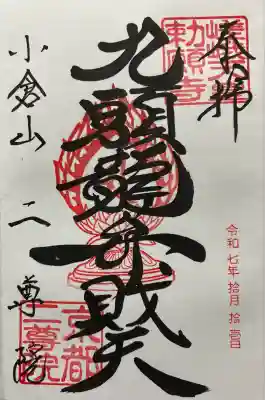 奉拝
嵯峨
勅願寺
九頭龍弁財天
令和七年拾月拾壹日
小倉山 二尊院
京都
二尊院